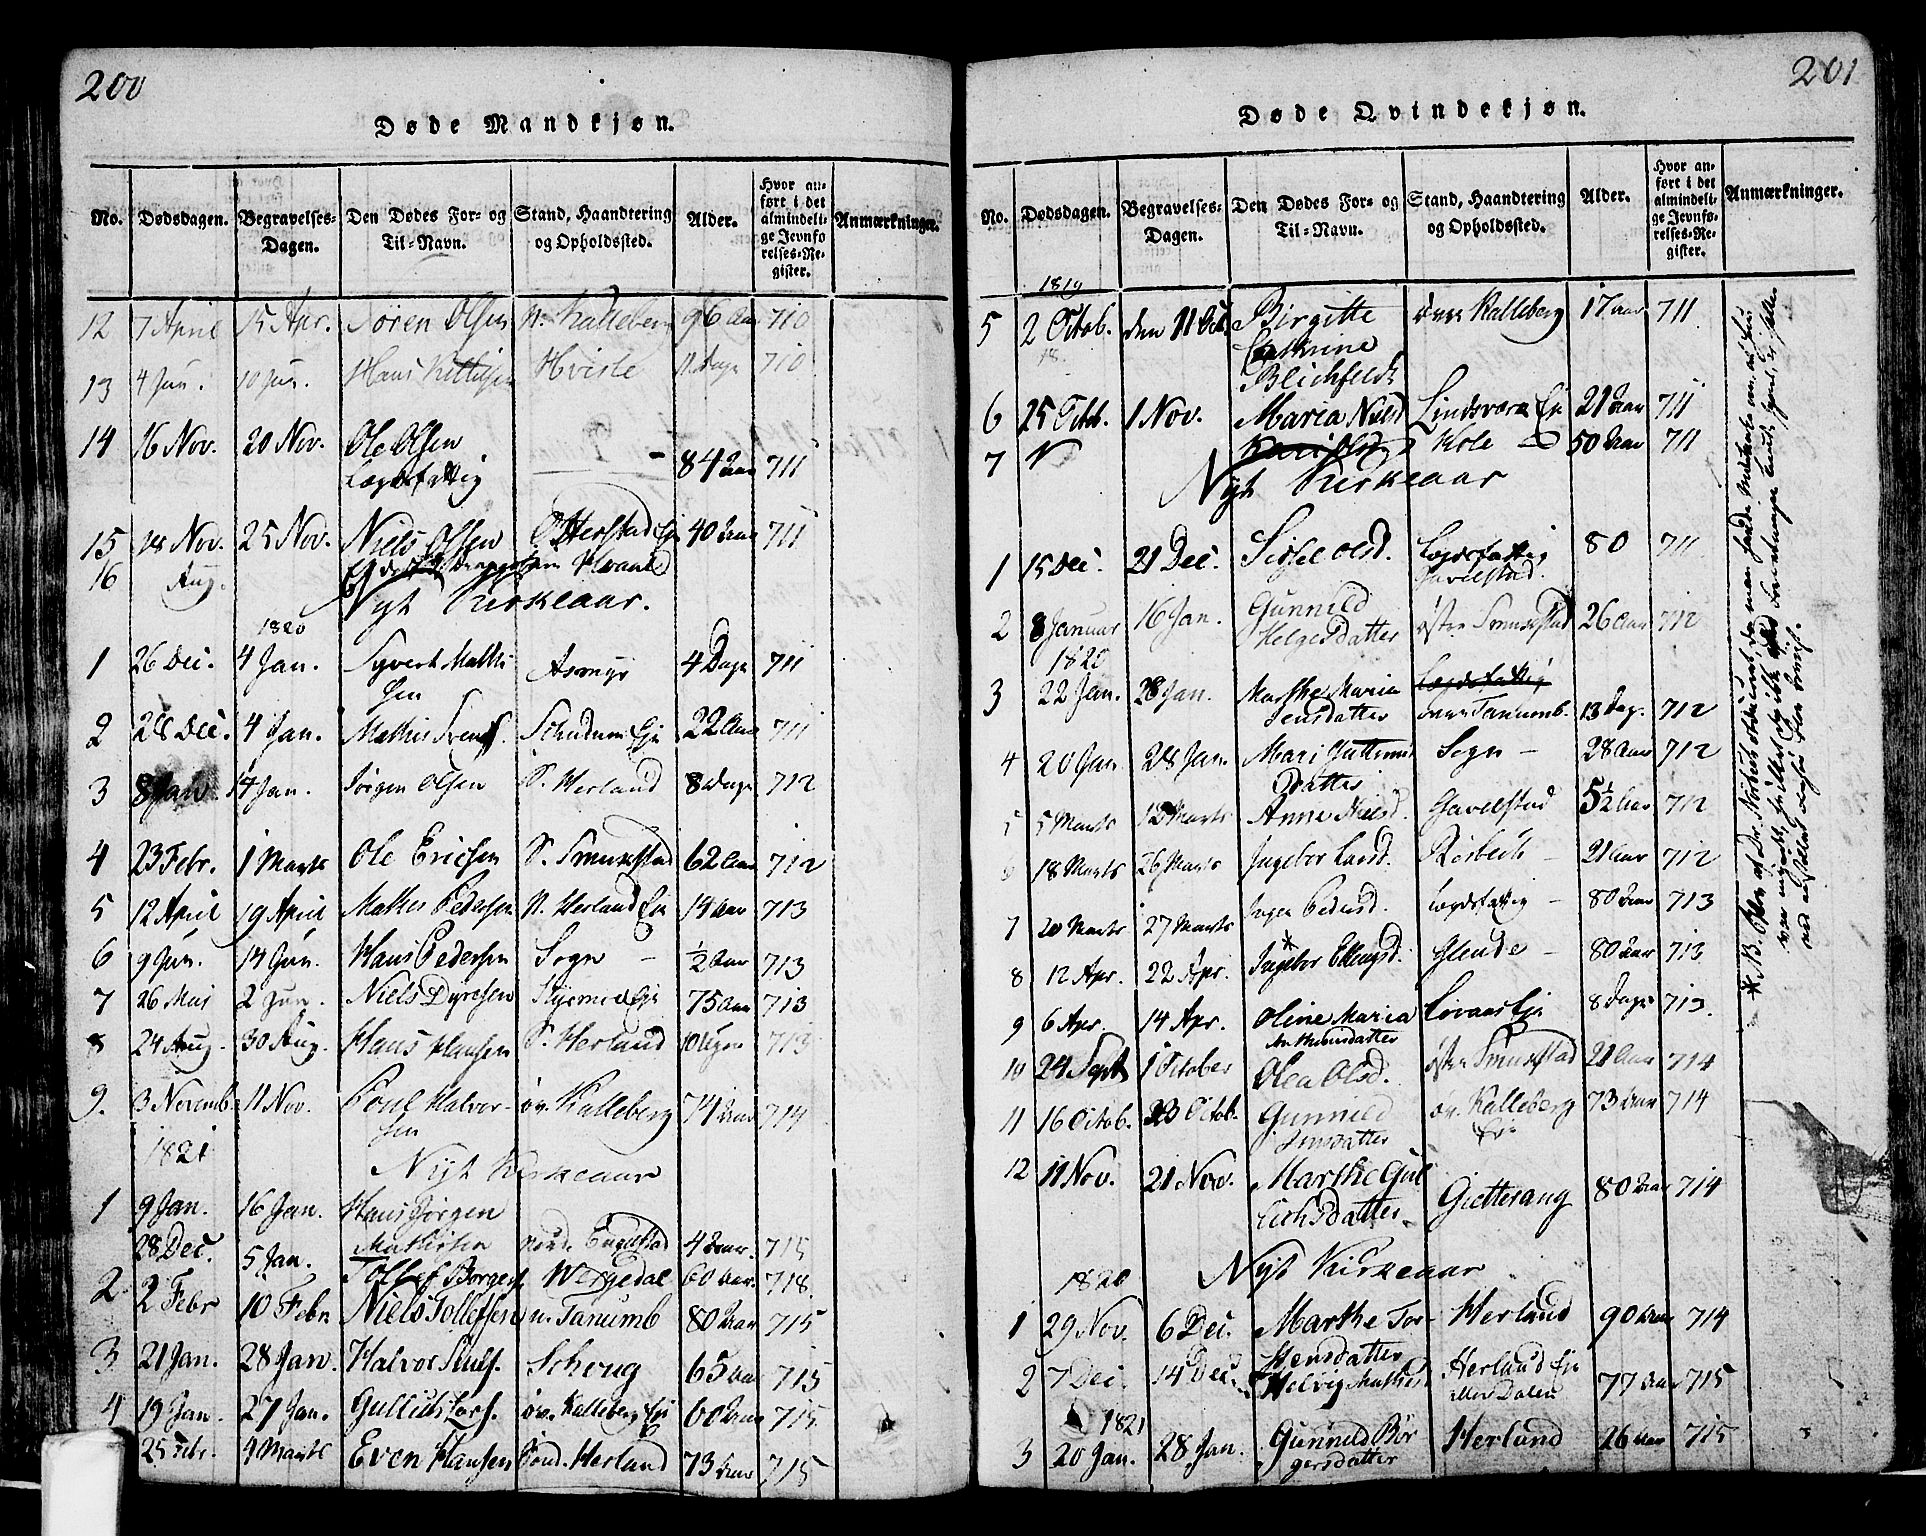 200
Døde Mandkjøn.
No. Dødsdagen. Begravelses-Dagen. Den Dødes For- og Til-Navn. Stand, Haandtering og Opholdssted. Alder. Hvor anført i det almindelige Jevnførelses-Register. Anmærkninger.
12 7 April 15 Apr. Søren Olsen N. Kalleberg 96 Aar 710
13 4 Jun. 10 Jun. Hans Kittilsen Hvisle 11 Dage 710
14 16 Nov. 20 Nov. Ole Olsen
Lægdsfattig 84 Aar 711
15 18 Nov. 25 Nov. Niels Olsen Otterstad Eje 40 Aar 711
16 Aug.
Nyt Kirkeaar.
1820
1 26 Dec. 4 Jan. Syvert Mathi Asmyr 4 Dage 711
sen
2 28 Dec. 4 Jan. Mathis Svens. Schudum Eje 22 Aar 711
3 8 Jan 14 Jan. Jørgen Olsen S. Herland 8 Dage 712
4 23 Febr. 1 Marts Ole Ericsen S. Smukestad 62 Aar 712
5 12 April 19 April Mathis Pedersen N. Herland Eje 14 Aar 713
6 9 Jun. 14 Jun. Hans Pedersen Sogn - ½ Aar 713
7 26 Maj 2 Jun. Niels Dyresen Eje 75 Aar 713
8 24 Aug. 30 Aug. Hans Hansen S. Herland 10 Uger 713
9. 3 Novemb 11 Nov. Poul Halvor- øv. Kalleberg 74 Aar 714
sen
1821
Nyt Kirkeaar
1 9 Jan. 16 Jan. Hans Jørgen
Mathisen Engelstad 4 Aar. 715
28 Dec. 5 Jan. Tollef Borges. Wergedal 60 Aar. 718.
2 2 Febr 10 Febr Niels Tollefsen n. Tanumb 80 Aar 715
3 21 Jan. 28 Jan. Halvor Schoug 65 Aar 715
4 19 Jan. 27 Jan. Gullik Lars. øv. Kalleberg Eje 60 Aar 715.
25 Febr. 4 Marts Even Hansen Sönd. Herland 73 Aar 715
201
Døde Qvindekjøn.
No. Dødsdagen. Begravelses-Dagen. Den Dødes For- og Til-Navn. Stand, Haandtering og Opholdssted. Alder. Hvor anført i det almindelige Jevnførelses-Register. Anmærkninger.
1819
5 2 Octob. den 11 Oct. Birgitte over Kalleberg 17 aar 711
Cathrine
Blichfeldt
6 25 Octob. 1 Nov. Maria Nielsd Lindsværn Eje 21 Aar 711
7 Kole 50 Aar 711
Nyt Kirkeaar
1 15 Dec 21 Dec. Sissel Olsd. Lægdsfattig 80 711
Gavelstad.
2 8 Januar 16 Jan. Gunnild
Helgesdatter østre Smukestad 26 Aar 712
1820
3 22 Jan. 28 Jan. Marthe Maria Lægdsfattig
Jensdatter over Tanumb. 13 Dag. 712
4 20 Jan 28 Jan. Mari Guttorms Sogn - 28 Aar 712
Datter
5 5 Marts 12 Marts Anne Nielsd. Gavelstad 5½ Aar 712
6 18 Marts 26 Marts Ingebor Larsd. Rørbech - 21 Aar 712
7 20 Marts 27 Marts Inger Pedersd. Lægdsfattig - 80 Aar 713
8 12 Apr. 22 Apr. Ingebor Ellingsd. Glende - 80 Aar 713
9 6 Apr. 14 Apr. Oline Maria Lovaas Eje 8 Dage 713.
10 24 Sept 1 October Olea Olsd. østre Smukestad 21 Aar 714
11 16 Octob. 23 Octob. Gunnild øv. Kalleberg 73 Aar 714
Jensdatter Eje
12 11 Nov. 21 Nov. Marthe Gul
lichsdatter Gjetterang 80 Aar 714
1820 Nyt Kirkeaar
1 29 Nov. 6 Dec. Marthe Tor- Herland 90 Aar 714
stensdatter
2 7 Dec. 14 Dec. Helvig Mathisd Herland Eje 77 Aar 715
eller Dalen
1821
3 20 Jan. 28 Jan. Gunnild Bør Herland 26 Aar 715
gersdatter